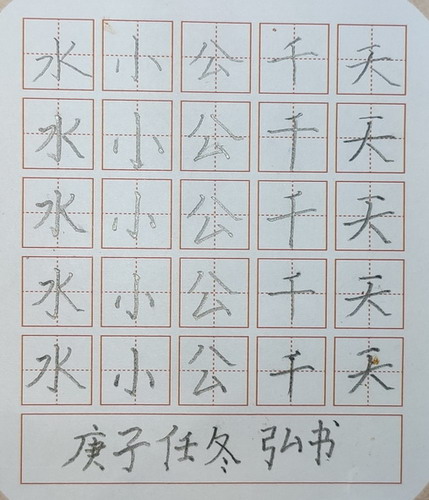 水小公千天
水小公千天
水小公千天
水小公千天
水小公千天
庚子任冬弘书